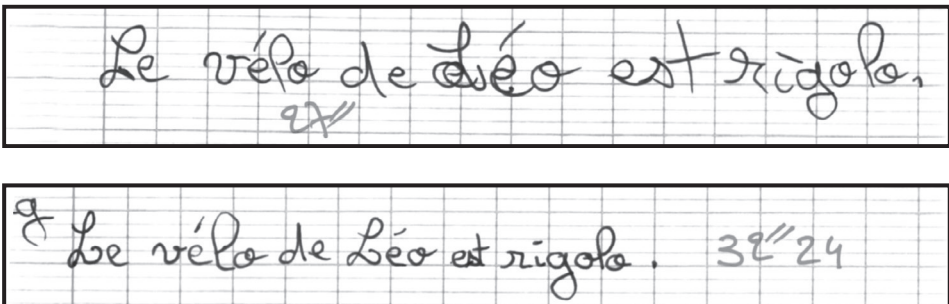 Le vélo de Léo est rigolo.
27"
g Le vélo de Léo est rigolo. 32" 24